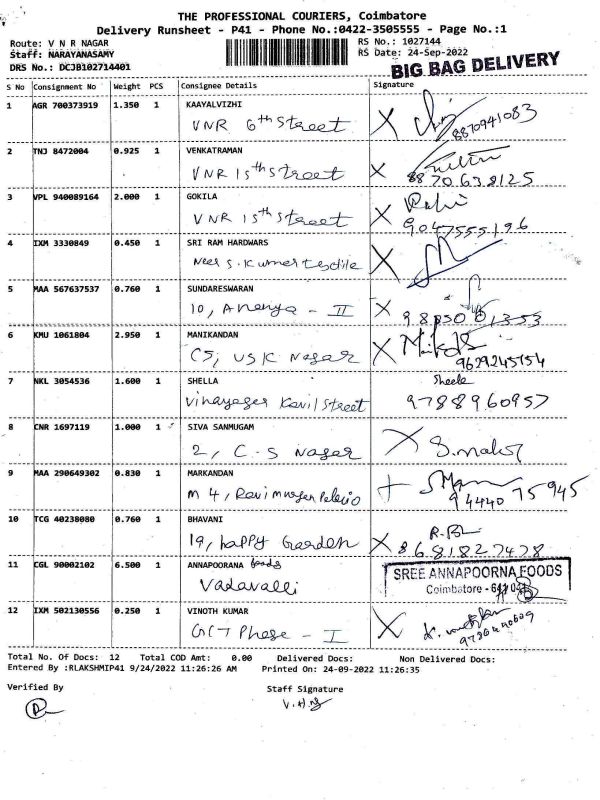 THE PROFESSIONAL COURIERS, Coimbatore
Delivery Runsheet - P41 - Phone No.:0422-3505555 - Page No.:1
Route: V N R NAGAR
RS No.: 1027144
Staff: NARAYANASAMY
RS Date: 24-Sep-2022
DRS No.: DCJB102714401
BIG BAG DELIVERY
S No Consignment No Weight PCS Consignee Details Signature
1 AGR 700373919 1.350 1 KAAYALVIZHI
VNR 6th Street X 8870941083
2 TNJ 8472004 0.925 1 VENKATRAMAN
VNR 15th Street X 8870638125
3 VPL 940089164 2.000 1 GOKILA
VNR 15th Street X 9047555196
4 IXM 3330849 0.450 1 SRI RAM HARDWARS
Near S. Kumar textile X
5 MAA 567637537 0.760 1 SUNDARESWARAN
10, Ananya - II X
6 KMU 1061804 2.950 1 MANIKANDAN
C5, VSK Nagar X 9629245754
7 NKL 3054536 1.600 1 SHELLA Sheela
Vinayager Kovil Street 9788960957
8 CNR 1697119 1.000 1 SIVA SANMUGAM
2, C.S Nagar X
9 MAA 290649302 0.830 1 MARKANDAN
M 4, 9444075945
10 TCG 40238080 0.760 1 BHAVANI
19, happy Garden X 8681827478
11 CGL 90002102 6.500 1 ANNAPOORANA foods
Vadavalli
SREE ANNAPOORNA FOODS
Coimbatore - 641 041
12 IXM 502130556 0.250 1 VINOTH KUMAR
GCT Phase - I X
Total No. Of Docs: 12 Total COD Amt: 0.00 Delivered Docs: Non Delivered Docs:
Entered By :RLAKSHMIP41 9/24/2022 11:26:26 AM Printed On: 24-09-2022 11:26:35
Verified By Staff Signature